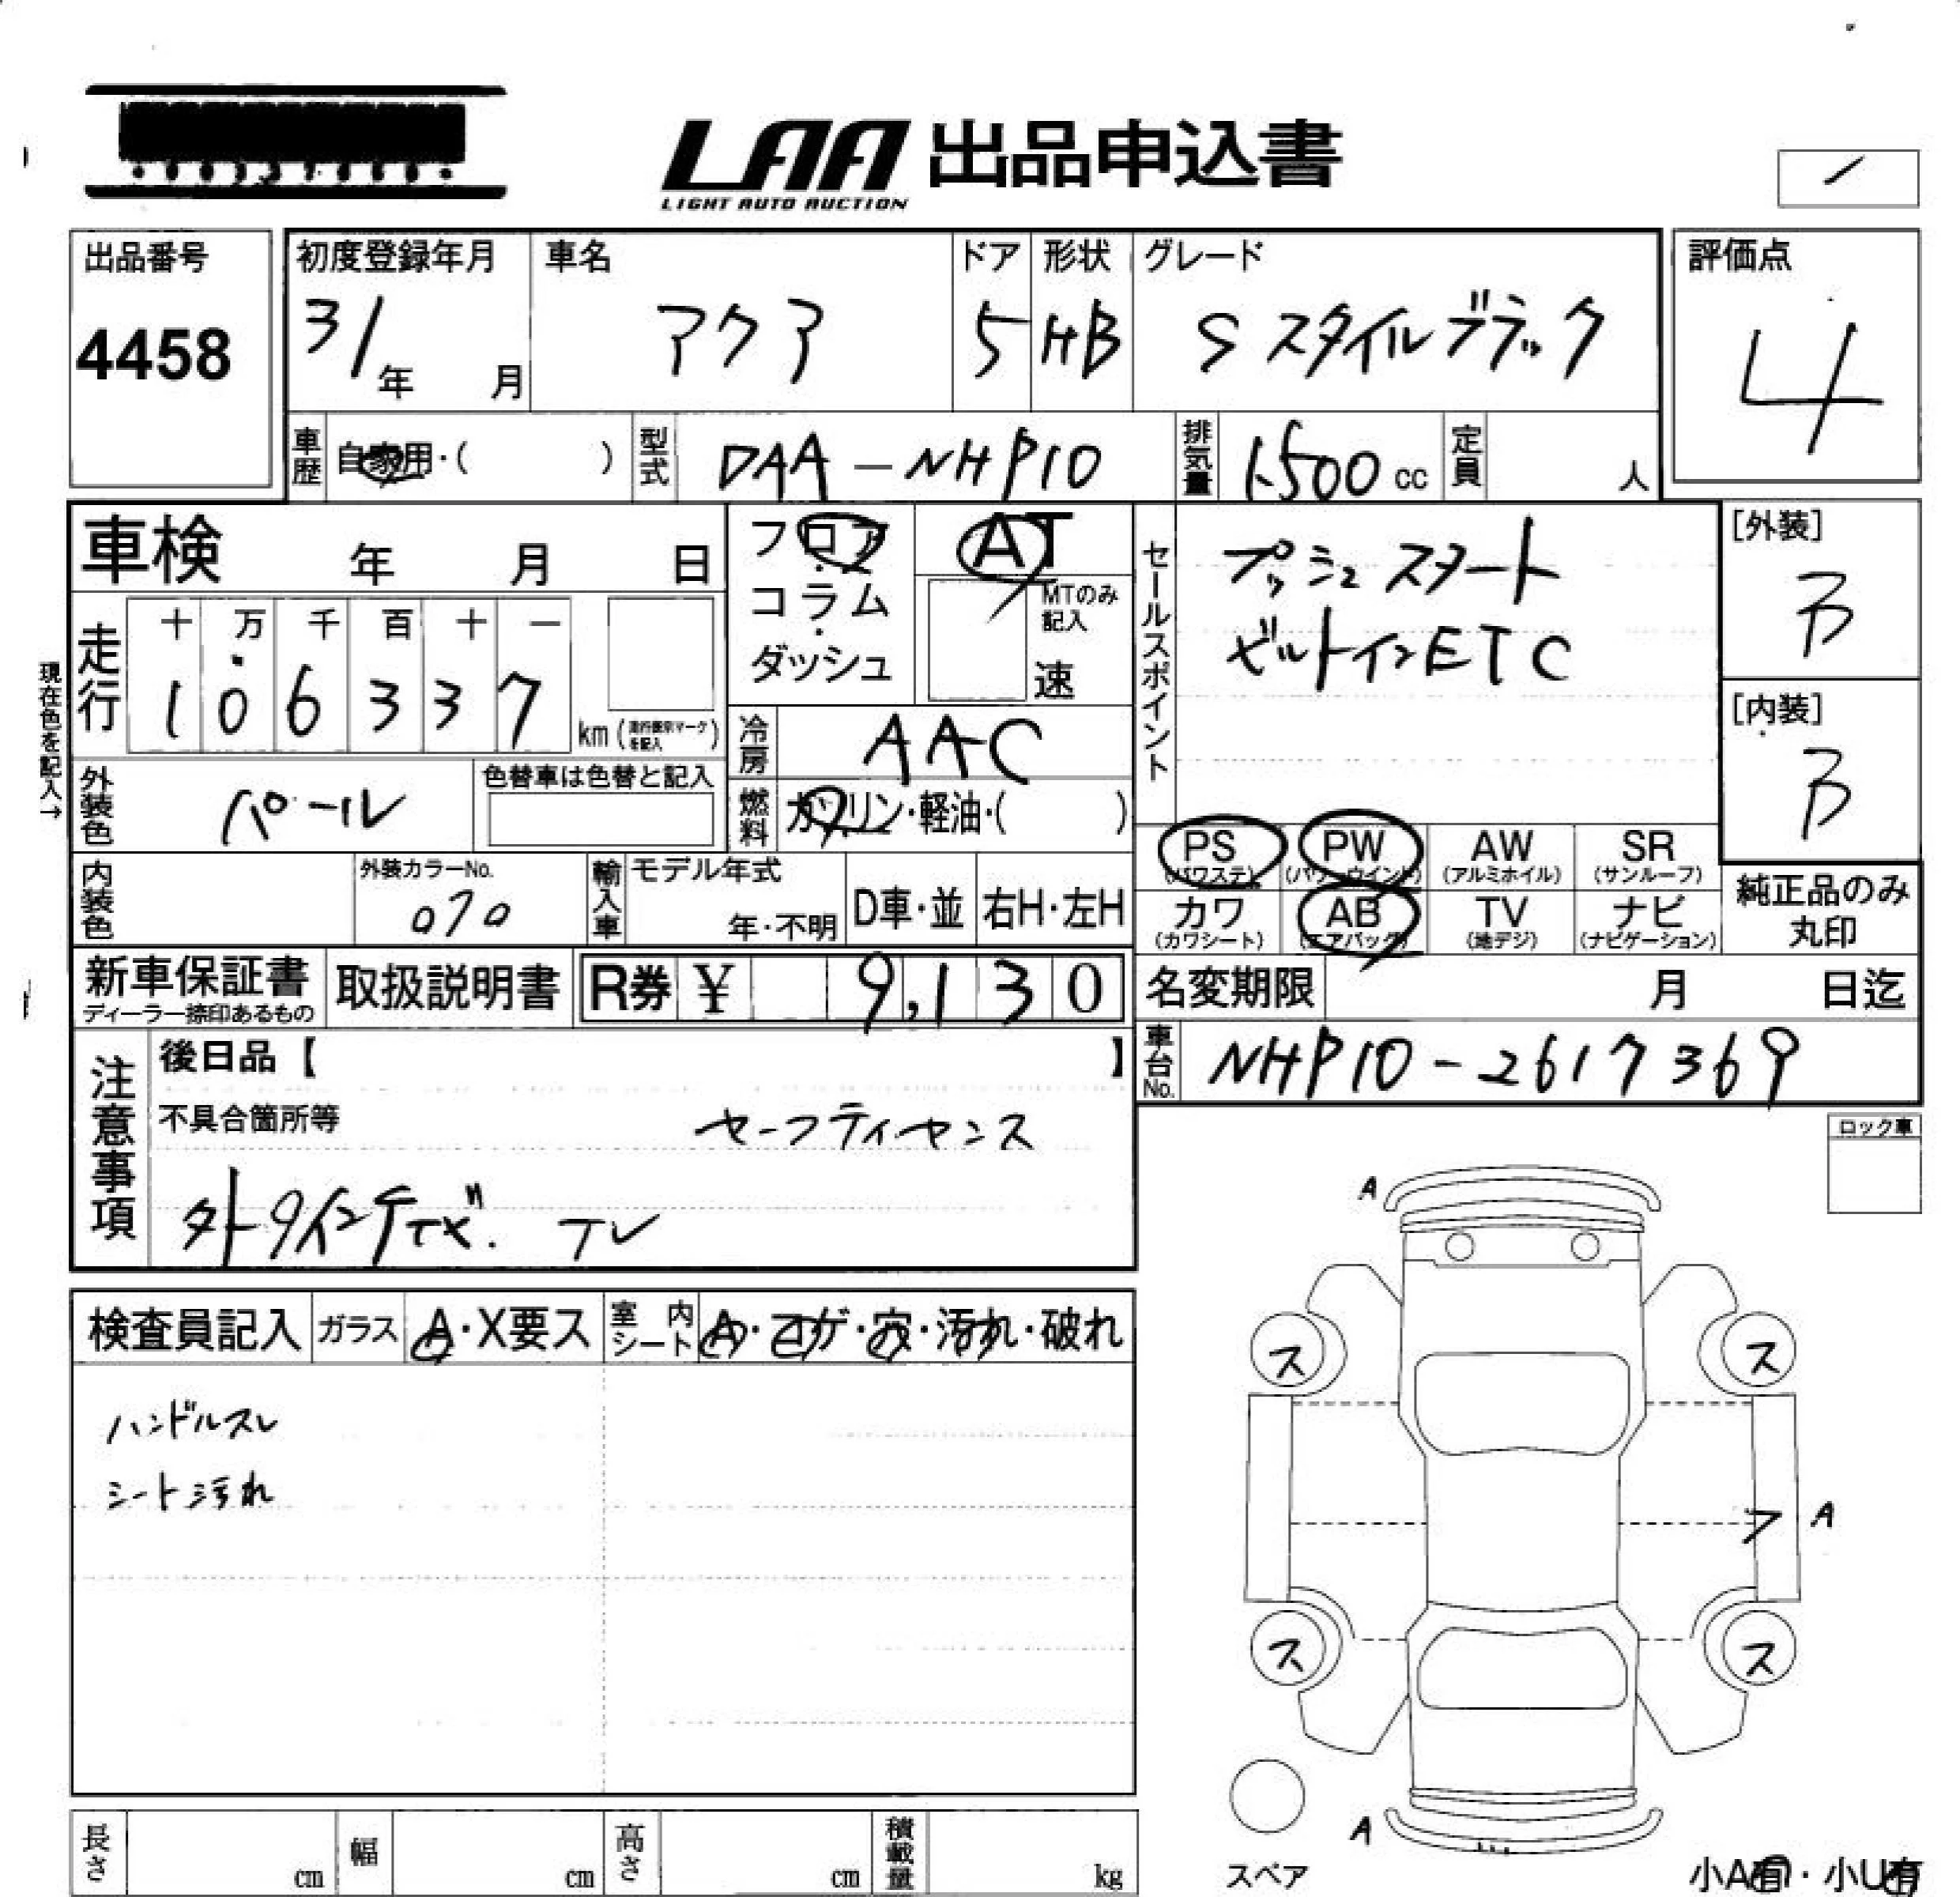 LAA 出品申込書
LIGHT AUTO AUCTION
出品番号
4458
初度登録年月
31年 月
車名
アクア
ドア
5
形状
HB
グレード
S スタイルブラック
評価点
4
車歴 自家用・( )
型式 DAA-NHP10
排気量 1500 cc
定員 人
車検 年 月 日
フロア・コラム・ダッシュ
AT
MTのみ記入
速
セールスポイント
プッシュスタート
ビルトインETC
[外装]
B
[内装]
B
現在色を記入→
走行
十 万 千 百 十 一
1 0 6 3 3 7
km (走行表示マークを記入)
冷房 AAC
燃料 ガソリン・軽油・( )
外装色 パール
色替車は色替と記入
内装色
外装カラーNo.
070
輸入車
モデル年式
年・不明
D車・並
右H・左H
PS (パワステ)
PW (パワーウインド)
AW (アルミホイル)
SR (サンルーフ)
カワ (カワシート)
AB (エアバッグ)
TV (地デジ)
ナビ (ナビゲーション)
純正品のみ丸印
新車保証書
ディーラー捺印あるもの
取扱説明書
R券 ¥ 9,130
名変期限 月 日迄
車台No. NHP10-2617369
注意事項
後日品【 】
不具合箇所等
セーフティセンス
TV
ロック車
検査員記入
ガラス A・X要ス
室内シート A・コゲ・穴・汚れ・破れ
ハンドルスレ
シート汚れ
A
ス ス
A
ス ス
A
スペア
小A有・小U有
長さ cm
幅 cm
高さ cm
積載量 kg